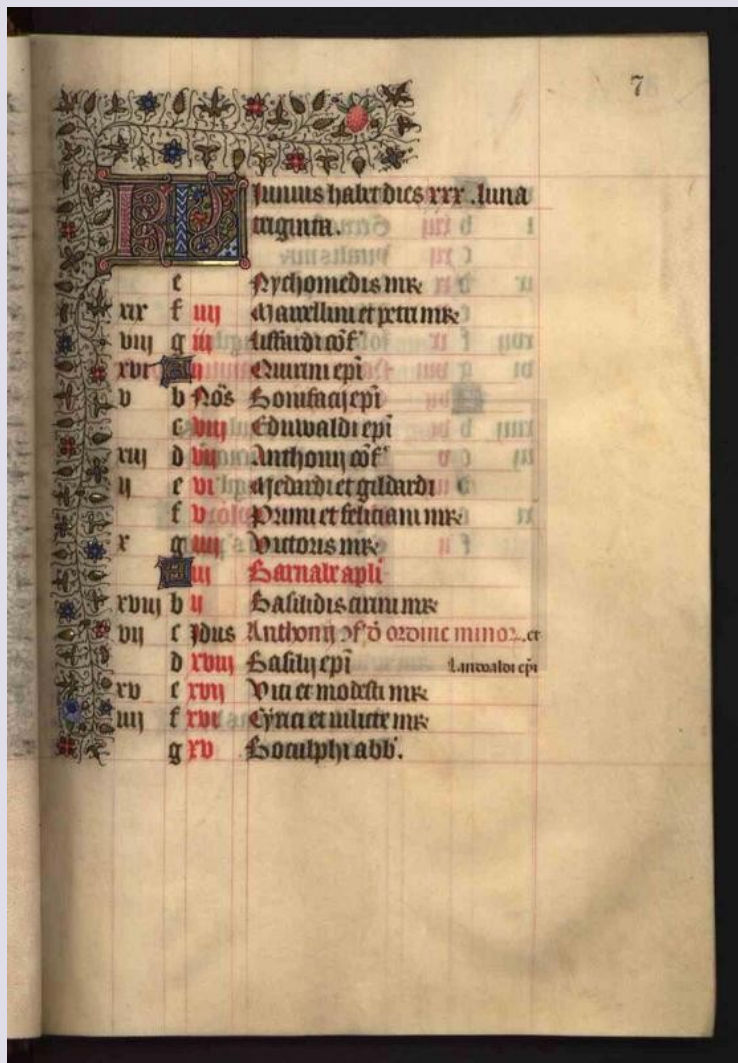 7
KL Junius habet dies xxx . luna
triginta.
e Nychomedis mr̃
xix f iiij Marcellini et petri mr̃
viij g iij Liffardi cõf
xvi A ij Quirini epĩ
v b Nõs Bonifacij epĩ
c viij Eduwaldi epĩ
xiij d vij Anthonij cõf
ij e vi Medardi et gildardi
f v Primi et feliciani mr̃
x g iiij Victoris mr̃
A iij Barnabe apl̃i
xviij b ij Basilidis cirini mr̃
vij c Jdus Anthonij ↄf d̾ ordine minoꝝ. et
d xviij Basilij epĩ Lantoaldi epĩ
xv e xvij Viti et modesti mr̃
iiij f xvi Cyrici et iulicte mr̃
g xv Botulphi abb̾.